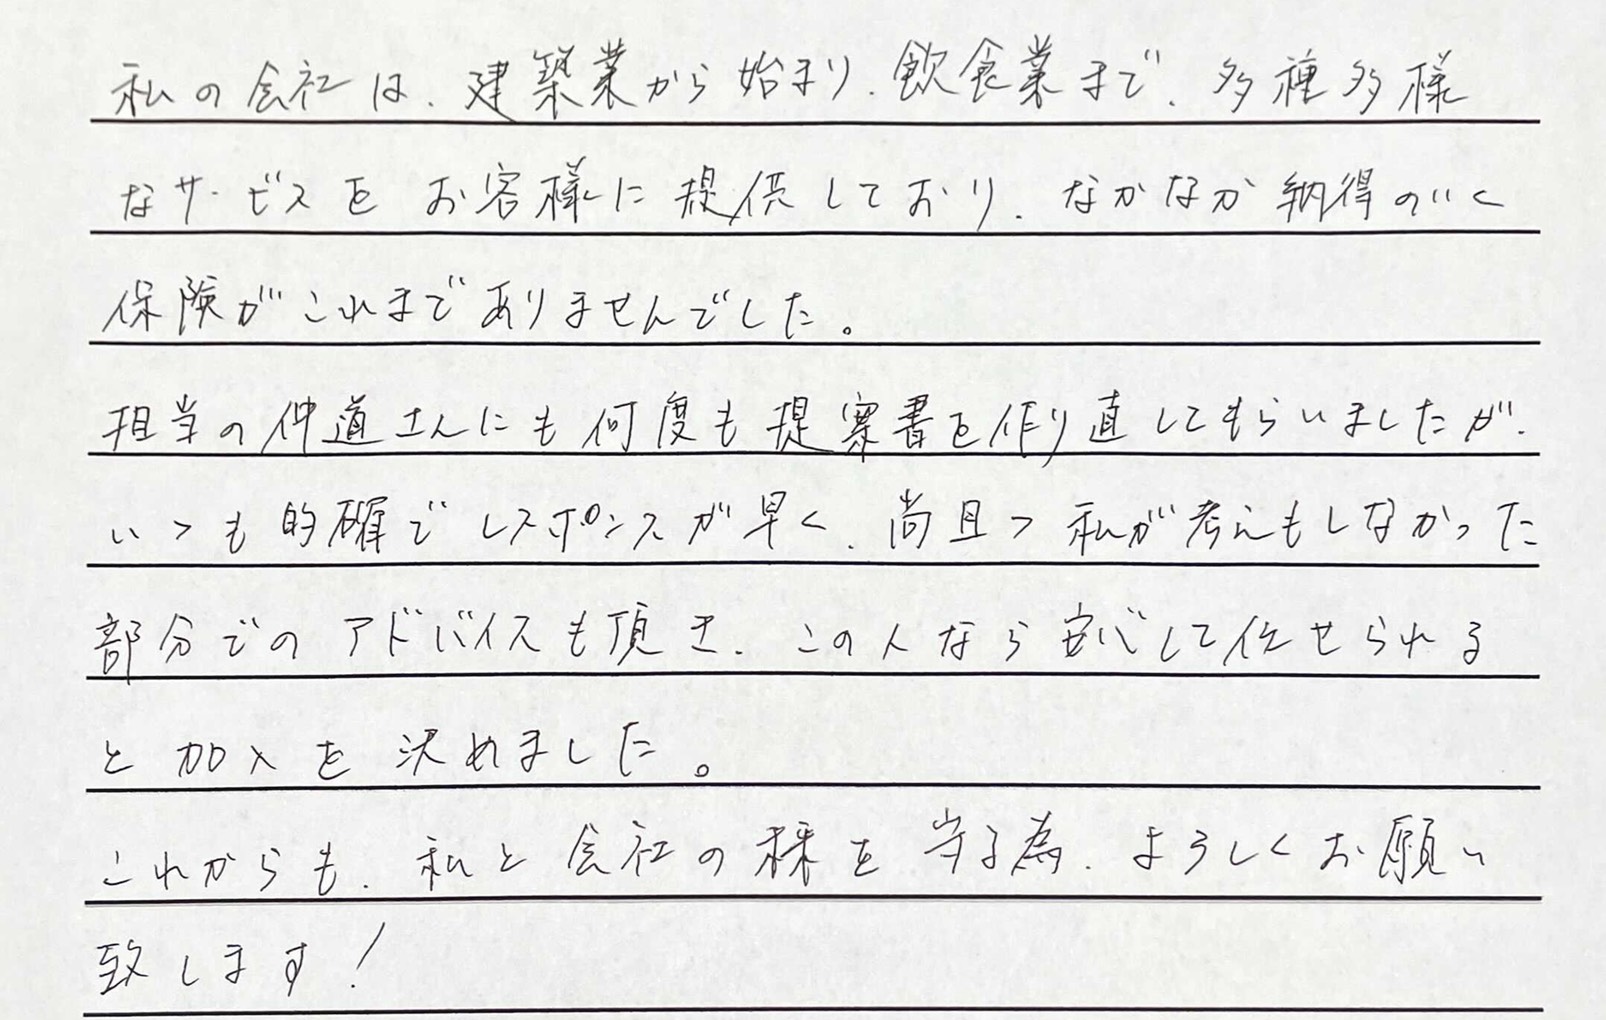 私の会社は、建築業から始まり、飲食業まで、多種多様
なサービスをお客様に提供しており、なかなか納得のいく
保険がこれまでありませんでした。
担当の仲道さんにも何度も提案書を作り直してもらいましたが、
いつも的確でレスポンスが早く、尚且つ私が考えもしなかった
部分でのアドバイスも頂き、この人なら安心して任せられる
と加入を決めました。
これからも、私と会社の株を守る為、よろしくお願い
致します!